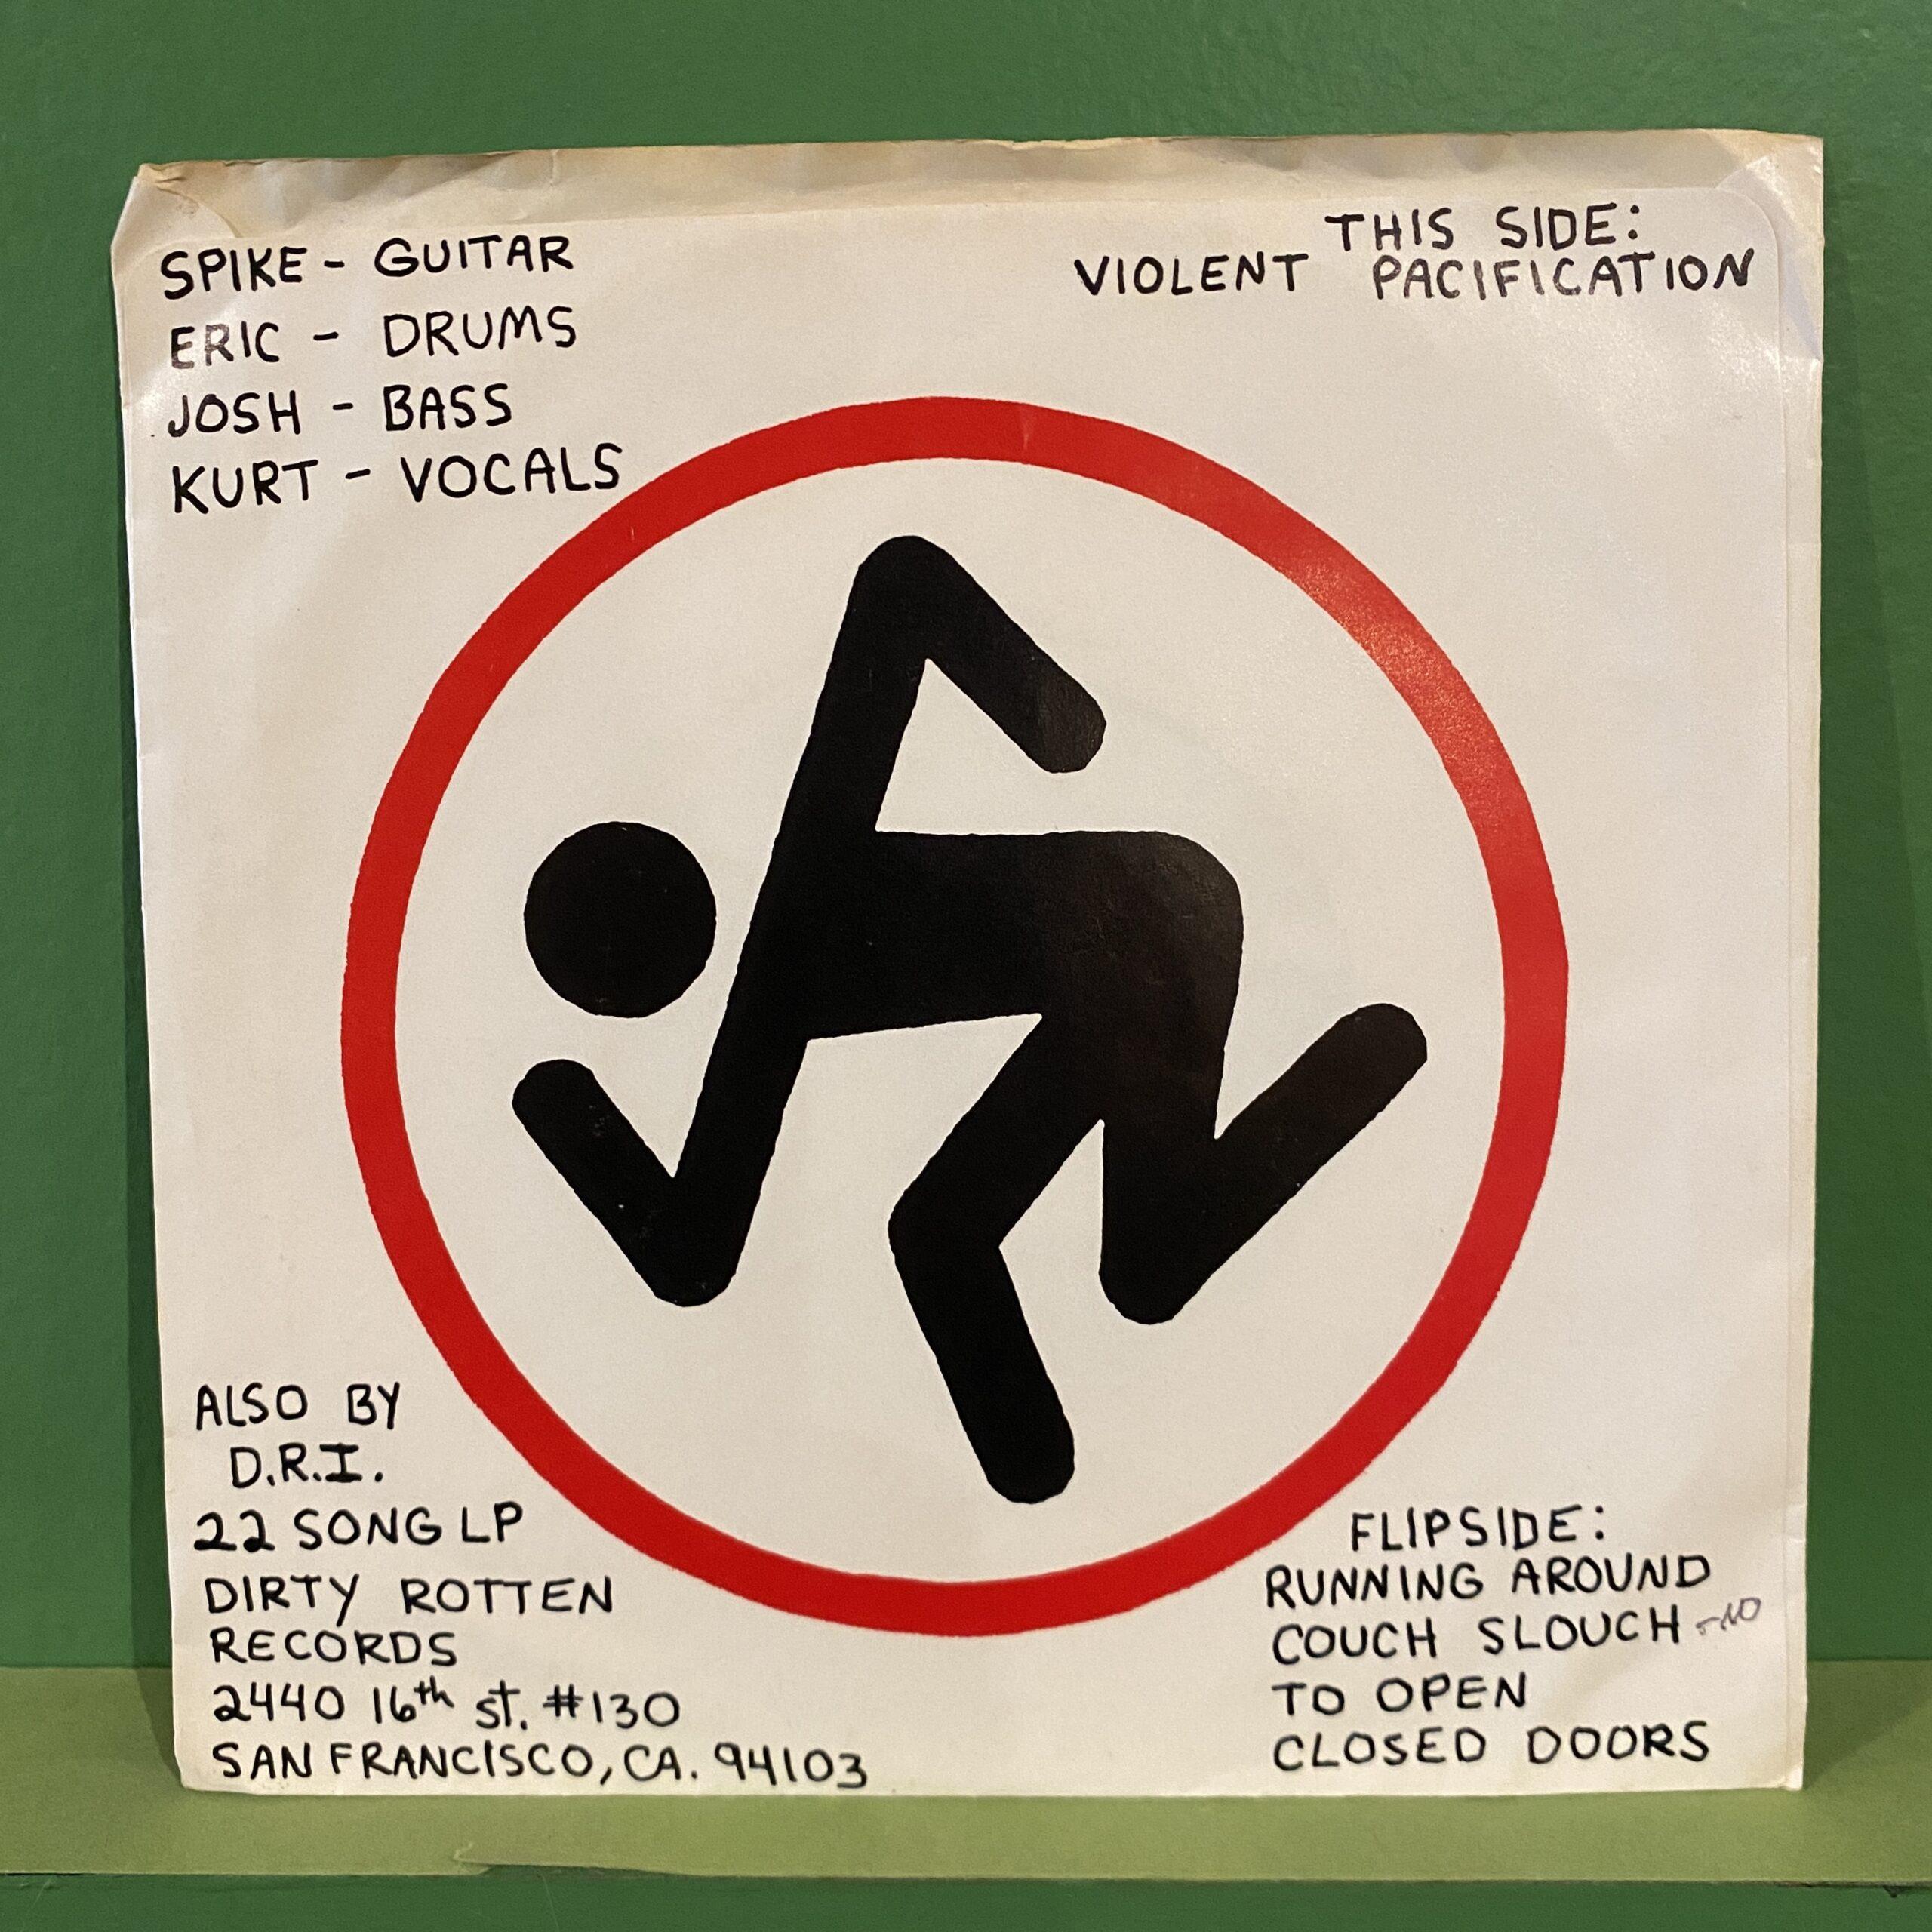 SPIKE - GUITAR
ERIC - DRUMS
JOSH - BASS
KURT - VOCALS
THIS SIDE:
VIOLENT PACIFICATION
ALSO BY
D.R.I.
22 SONG LP
DIRTY ROTTEN
RECORDS
2440 16th st. #130
SAN FRANCISCO, CA. 94103
FLIPSIDE:
RUNNING AROUND
COUCH SLOUCH -NO
TO OPEN
CLOSED DOORS